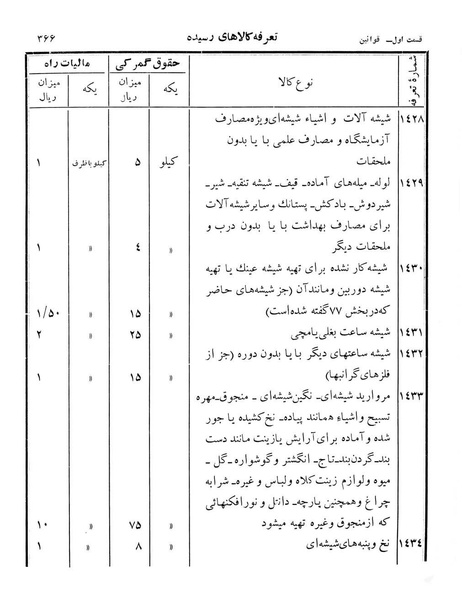 قسمت اول ـ قوانین
تعرفه کالاهای رسیده
۳۶۶
شمارهٔ تعرفه
نوع کالا
حقوق گمرکی
مالیات راه
یکه
میزان ریال
یکه
میزان ریال
۱٤۲۸ شیشه آلات و اشیاء شیشه‌ای ویژه مصارف
آزمایشگاه و مصارف علمی با یا بدون
ملحقات کیلو ۵ کیلو با ظرف ۱
۱٤۲۹ لوله ـ میله‌های آماده ـ قیف ـ شیشه تنقیه ـ شیر ـ
شیردوش ـ بادکش ـ پستانك و سایر شیشه آلات
برای مصارف بهداشت با یا بدون درب و
ملحقات دیگر » ٤ » ۱
۱٤۳۰ شیشه کار نشده برای تهیه شیشه عینك یا تهیه
شیشه دوربین و مانند آن (جز شیشه‌های حاضر
که در بخش ۷۷ گفته شده است) » ۱۵ » ۱/۵۰
۱٤۳۱ شیشه ساعت بغلی یا مچی » ۲۵ » ۲
۱٤۳۲ شیشه ساعتهای دیگر با یا بدون دوره (جز از
فلزهای گرانبها) » ۱۵ » ۱
۱٤۳۳ مروارید شیشه‌ای ـ نگین شیشه‌ای ـ منجوق ـ مهره
تسبیح و اشیاء همانند پیاده ـ نخ کشیده یا جور
شده و آماده برای آرایش یا زینت مانند دست
بند ـ گردن بند ـ تاج ـ انگشتر و گوشواره ـ گل ـ
میوه و لوازم زینت کلاه و لباس و غیره ـ شرابه
چراغ و همچنین پارچه ـ دانتل و نورافکنهائی
که از منجوق و غیره تهیه میشود » ۷۵ » ۱۰
۱٤۳٤ نخ و پنبه‌های شیشه‌ای » ۸ » ۱